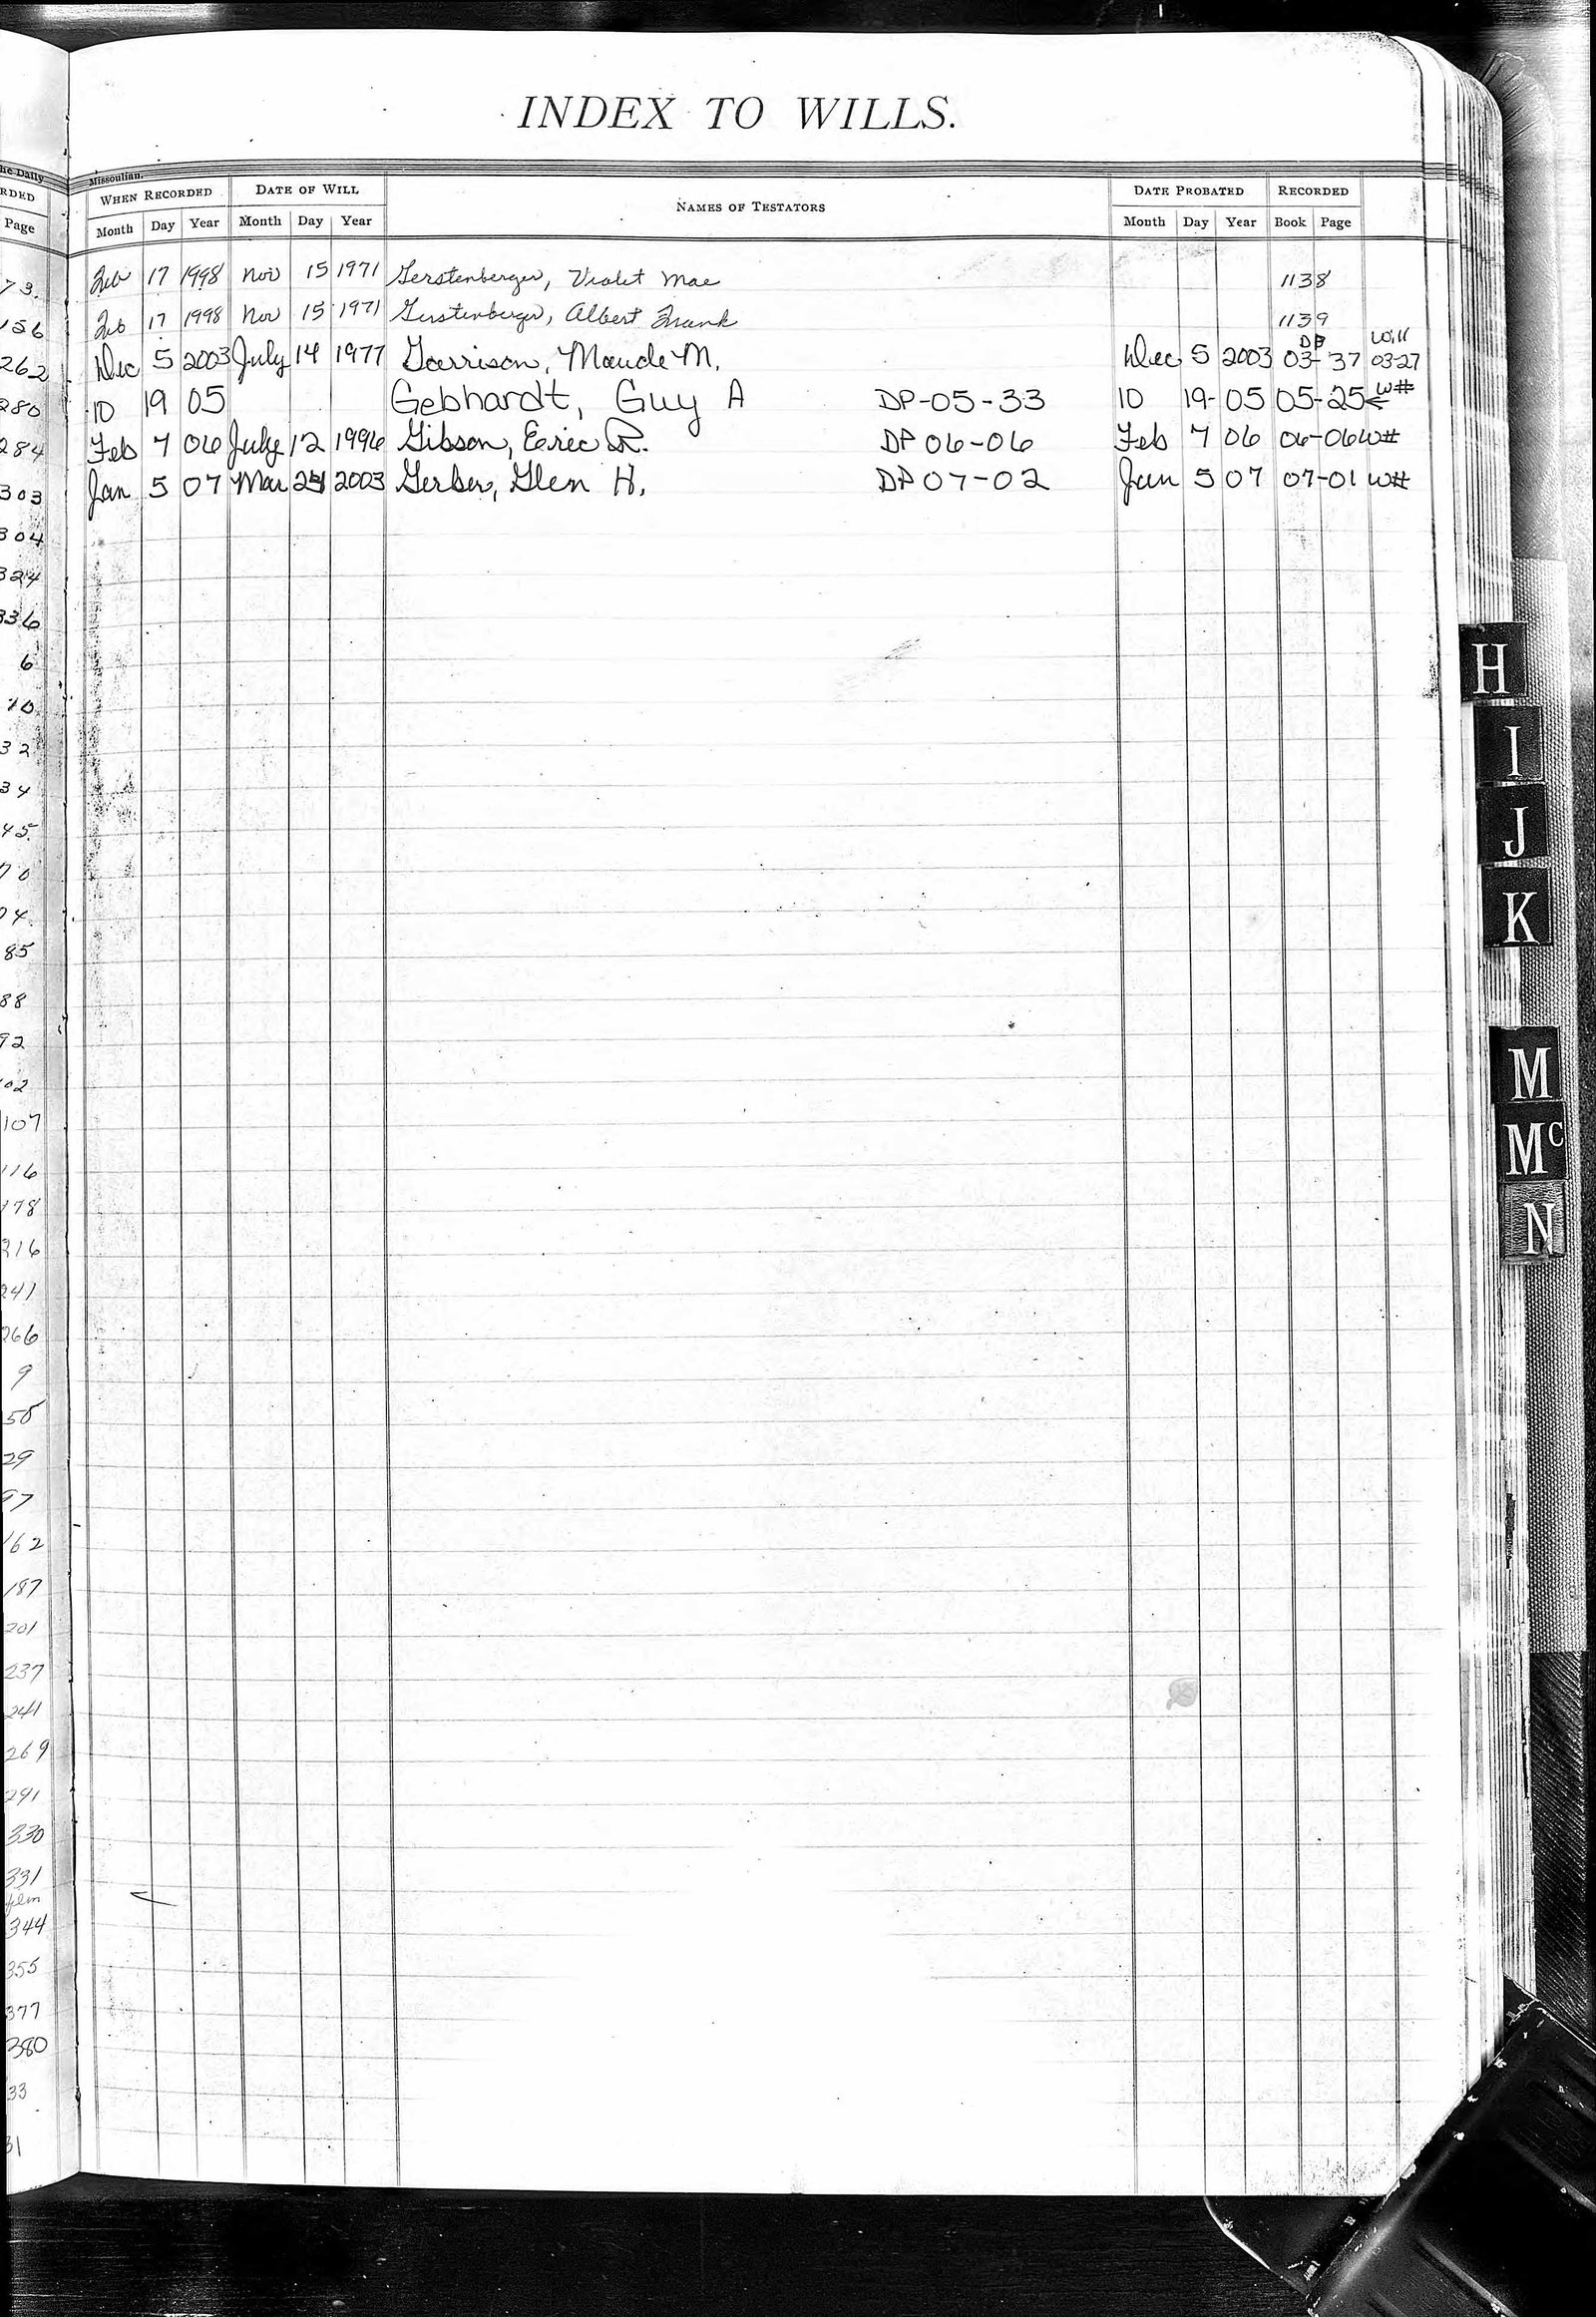 INDEX TO WILLS.
he Daily
Missoulian.
RDED
WHEN RECORDED DATE OF WILL NAMES OF TESTATORS DATE PROBATED RECORDED
Page
Month Day Year Month Day Year Month Day Year Book Page
Feb 17 1998 Nov 15 1971 Gerstenberger, Violet Mae 1138
Feb 17 1998 Nov 15 1971 Gerstenberger, Albert Frank 1139
DP Will
Dec 5 2003 July 14 1977 Garrison, Maude M. Dec 5 2003 03-37 03-27
10 19 05 Gebhardt, Guy A DP-05-33 10 19-05 05-25 ← W#
Feb 7 06 July 12 1996 Gibson, Eric R. DP 06-06 Feb 7 06 06-06 W#
Jan 5 07 Mar 24 2003 Gerber, Glen H. DP 07-02 Jan 5 07 07-01 W#
73.
156
262
280
284
303
304
324
336
6
10
32
34
45
70
04
85
88
92
102
107
116
178
216
241
266
9
50
29
97
162
187
201
237
241
269
291
330
331
film
344
355
377
380
33
31
H
I
J
K
M
Mc
N